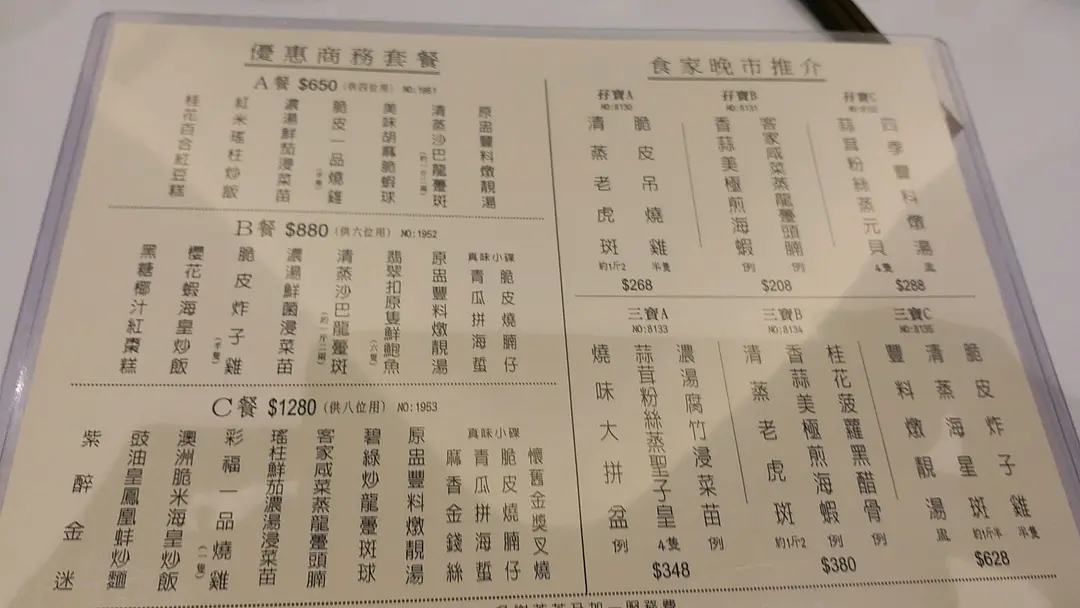 優惠商務套餐
A餐 $650 (供四位用) NO:1951
原盅豐料燉靚湯
清蒸沙巴龍躉斑(約一斤二兩)
美味胡麻脆蝦球
脆皮一品燒雞(半隻)
濃湯鮮茄浸菜苗
紅米瑤柱炒飯
桂花百合紅豆糕
B餐 $880 (供六位用) NO:1952
真味小碟
脆皮燒腩仔
青瓜拼海蜇
原盅豐料燉靚湯
翡翠扣原隻鮮鮑魚(六隻)
清蒸沙巴龍躉斑(約一斤二兩)
濃湯鮮菌浸菜苗
脆皮炸子雞(半隻)
櫻花蝦海皇炒飯
黑糖椰汁紅棗糕
C餐 $1280 (供八位用) NO:1953
真味小碟
懷舊金獎叉燒
脆皮燒腩仔
青瓜拼海蜇
麻香金錢絲
原盅豐料燉靚湯
碧綠炒龍躉斑球
客家咸菜蒸龍躉頭腩
瑤柱鮮茄濃湯浸菜苗
彩福一品燒雞(一隻)
澳洲脆米海皇炒飯
豉油皇鳳凰蚌炒麵
紫醉金迷
食家晚市推介
孖寶A
NO:8130
脆皮吊燒雞 半隻
清蒸老虎斑 約1斤2
$268
孖寶B
NO:8131
客家咸菜蒸龍躉頭腩 例
香蒜美極煎海蝦 例
$208
孖寶C
四季豐料燉湯 窩
蒜茸粉絲蒸元貝 4隻
$288
三寶A
NO:8133
濃湯腐竹浸菜苗 例
蒜茸粉絲蒸聖子皇 4隻
燒味大拼盆 例
$348
三寶B
NO:8134
桂花菠蘿黑醋骨 例
香蒜美極煎海蝦 例
清蒸老虎斑 約1斤2
$380
三寶C
NO:8135
脆皮炸子雞 半隻
清蒸海星斑 約1斤半
豐料燉靚湯 窩
$628